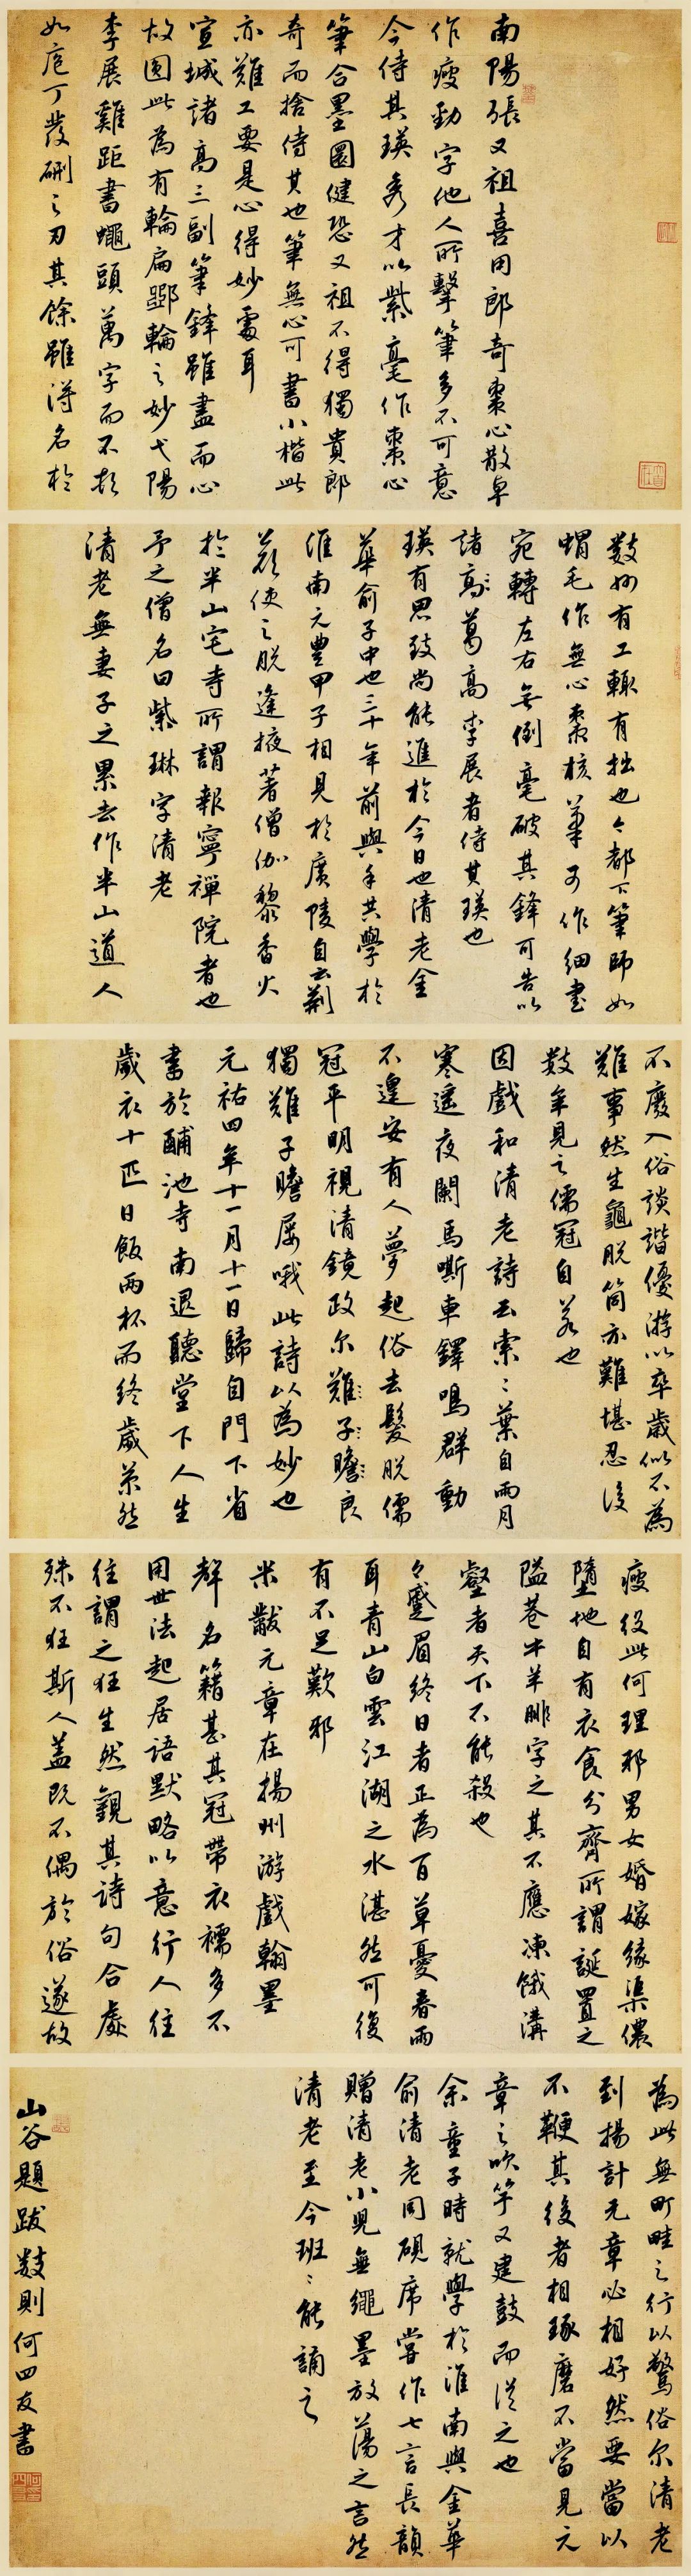 南陽張又祖喜用郎奇棗心散卓
作瘦勁字他人所擊筆多不可意
今侍其瑛秀才以紫毫作棗心
筆含墨圓健恐又祖不得獨貴郎
奇而捨侍其也筆無心可書小楷此
亦難工要是心得妙處耳
宣城諸高三副筆鋒雖盡而心
故圓此為有輪扁斲輪之妙弋陽
李展雞距書蠅頭萬字而不頓
如庖丁發硎之刃其餘雖得名於
數州有工輒有拙也今都下筆師如
蝟毛作無心棗核筆可作細書
宛轉左右無倒毫破其鋒可告以
諸高葛高李展者侍其瑛也
瑛有思致尚能進於今日也清老金
華俞子中也三十年前與予共學於
淮南元豐甲子相見於廣陵自云荊
公欲使之脫逢掖著僧伽黎香火
於半山宅寺所謂報寧禪院者也
予之僧名曰紫琳字清老
清老無妻子之累去作半山道人
不廢入俗談諧優游以卒歲似不為
難事然生龜脫筒亦難堪忍後
數年見之儒冠自若也
因戲和清老詩云索索葉自雨月
寒遙夜闌馬嘶車鐸鳴群動
不遑安有人夢超俗去髮脫儒
冠平明視清鏡政爾難子瞻良
獨難子瞻屢哦此詩以為妙也
元祐四年十一月十一日歸自門下省
書於酺池寺南退聽堂下人生
歲衣十匹日飯兩杯而終歲苶然
疲役此何理邪男女婚嫁緣渠儂
墮地自有衣食分齊所謂誕置之
隘巷牛羊腓字之其不應凍餓溝
壑者天下不能殺也
今蹙眉終日者正為百草憂春雨
耳青山白雲江湖之水湛然可復
有不足歎邪
米黻元章在揚州游戲翰墨
聲名籍甚其冠帶衣襦多不
用世法起居語默略以意行人往
往謂之狂生然觀其詩句合處
殊不狂斯人蓋既不偶於俗遂故
為此無町畦之行以驚俗尔清老
到揚計元章必相好然要當以
不鞭其後者相琢磨不當見元
章之吹竽又建鼓而從之也
余童子時就學於淮南與金華
俞清老同硯席嘗作七言長韻
贈清老小兒無繩墨放蕩之言然
清老至今班班能誦之
山谷題跋數則何四友書